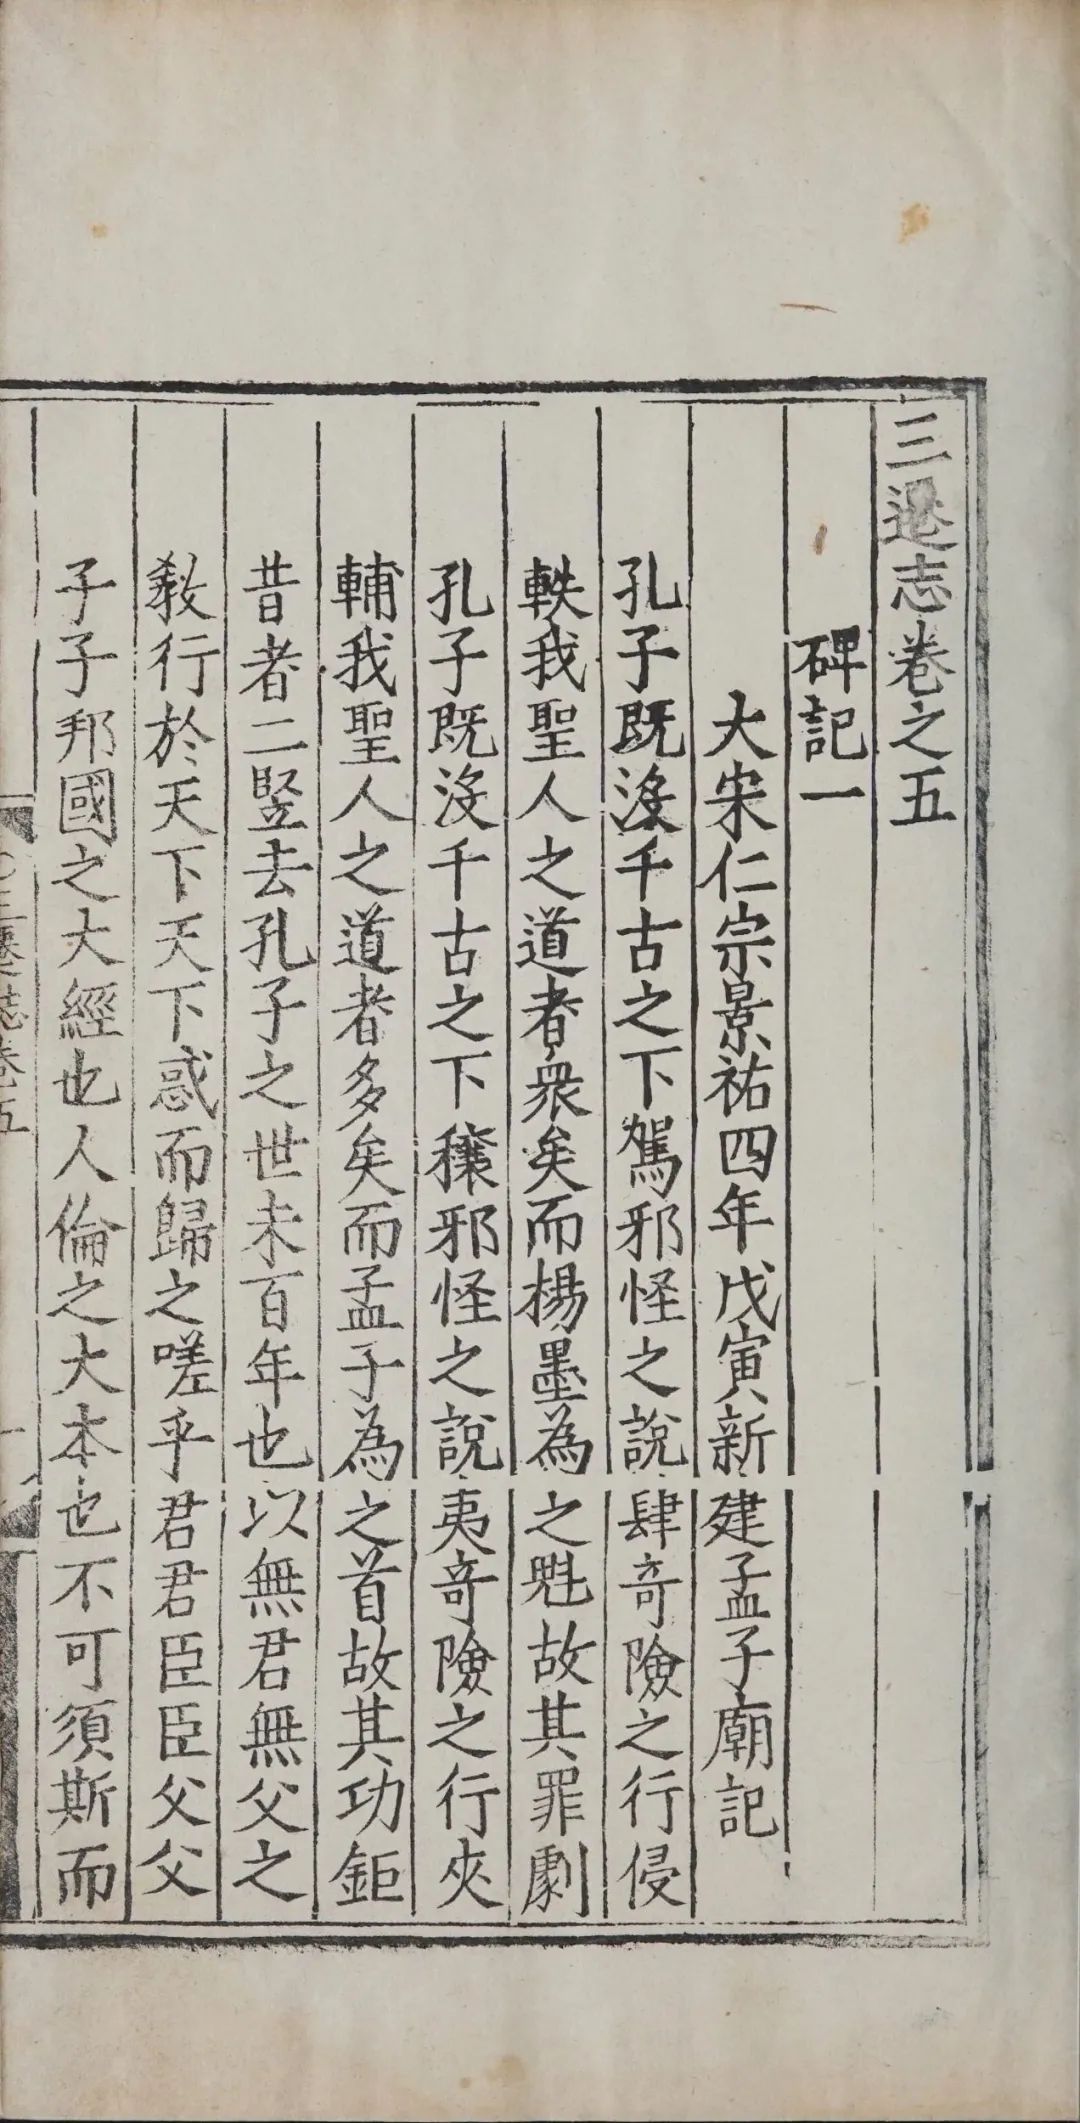 三遷志卷之五
碑記一
大宋仁宗景祐四年戊寅新建孟子廟記
孔子既沒千古之下駕邪怪之說肆奇險之行侵
軼我聖人之道者衆矣而楊墨為之魁故其罪劇
孔子既沒千古之下穰邪怪之說夷奇險之行夾
輔我聖人之道者多矣而孟子為之首故其功鉅
昔者二竪去孔子之世未百年也以無君無父之
敎行於天下天下惑而歸之嗟乎君君臣臣父父
子子邦國之大經也人倫之大本也不可須斯而
三遷誌卷五
一